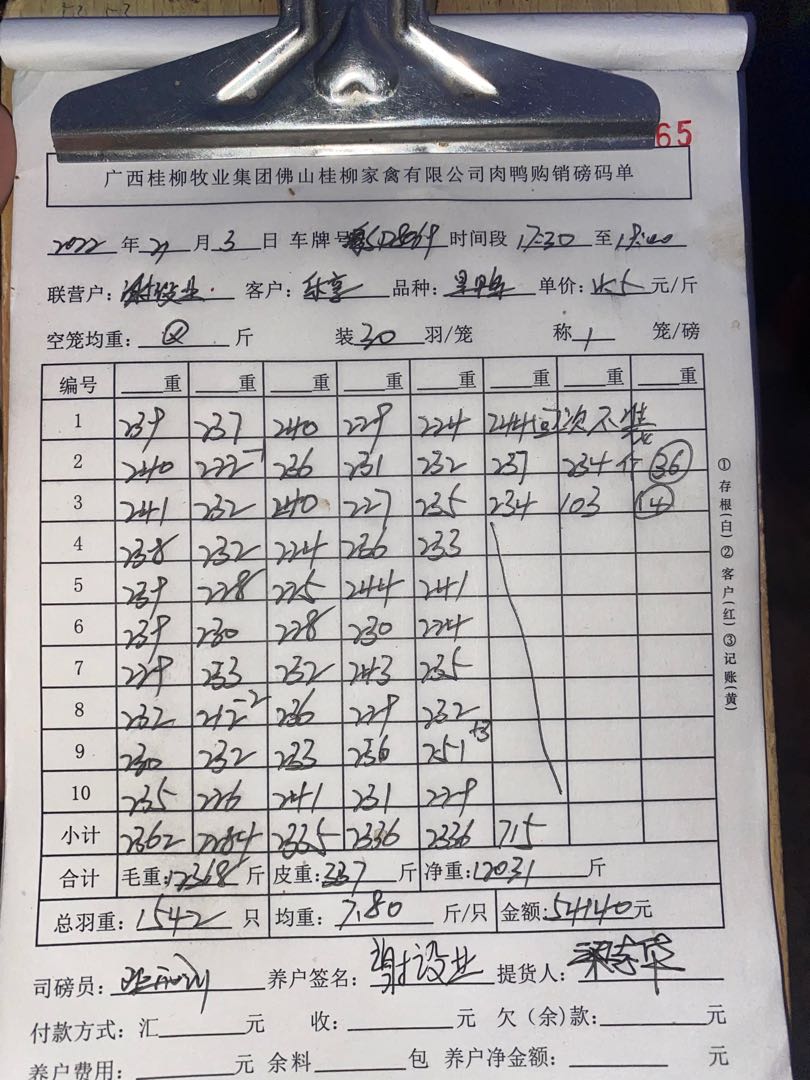 65
广西桂柳牧业集团佛山桂柳家禽有限公司肉鸭购销磅码单
2022 年 21 月 3 日 车牌号 时间段 17:30 至
联营户: 客户: 品种: 单价: 4.5 元/斤
空笼均重: 斤 装 30 羽/笼 称 1 笼/磅
编号 重 重 重 重 重 重 重 重
1 239 237 240 229 224 244 次不装
2 240 222-1 236 231 232 237 234 36
3 241 232 240 227 235 234 103 14
4 238 232 224 236 233
5 239 228 225 244 241
6 239 230 228 230 224
7 229 233 232 243 235
8 232 212-2 236 229 232
9 230 232 233 236 251+3
10 235 226 241 231 229
小计 2362 2284 2335 2336 2336 715
合计 毛重:12368 斤 皮重:337 斤 净重:12031 斤
总羽重:1542 只 均重:7.80 斤/只 金额:54140元
司磅员: 养户签名:谢设业 提货人:
付款方式:汇 元 收: 元 欠(余)款: 元
养户费用: 元 余料 包 养户净金额: 元
①存根(白)②客户(红)③记账(黄)